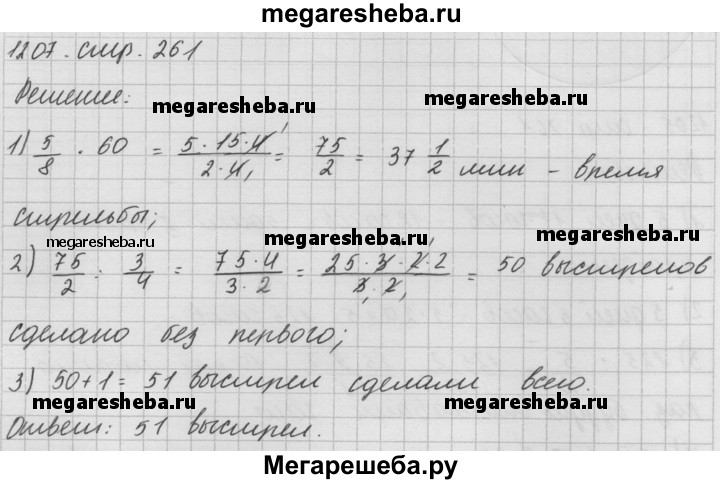 megaresheba.ru
1207. стр. 261
Решение:
megaresheba.ru megaresheba.ru
1) 5/8 · 60 = 5·15·4/2·4 = 75/2 = 37 1/2 мин - время
стрельбы;
megaresheba.ru megaresheba.ru
2) 75/2 : 3/4 = 75·4/3·2 = 25·3·2·2/3·2 = 50 выстрелов
сделано без первого;
3) 50+1 = 51 выстрел сделали всего.
megaresheba.ru megaresheba.ru
Ответ: 51 выстрел.
Мегарешеба.ру